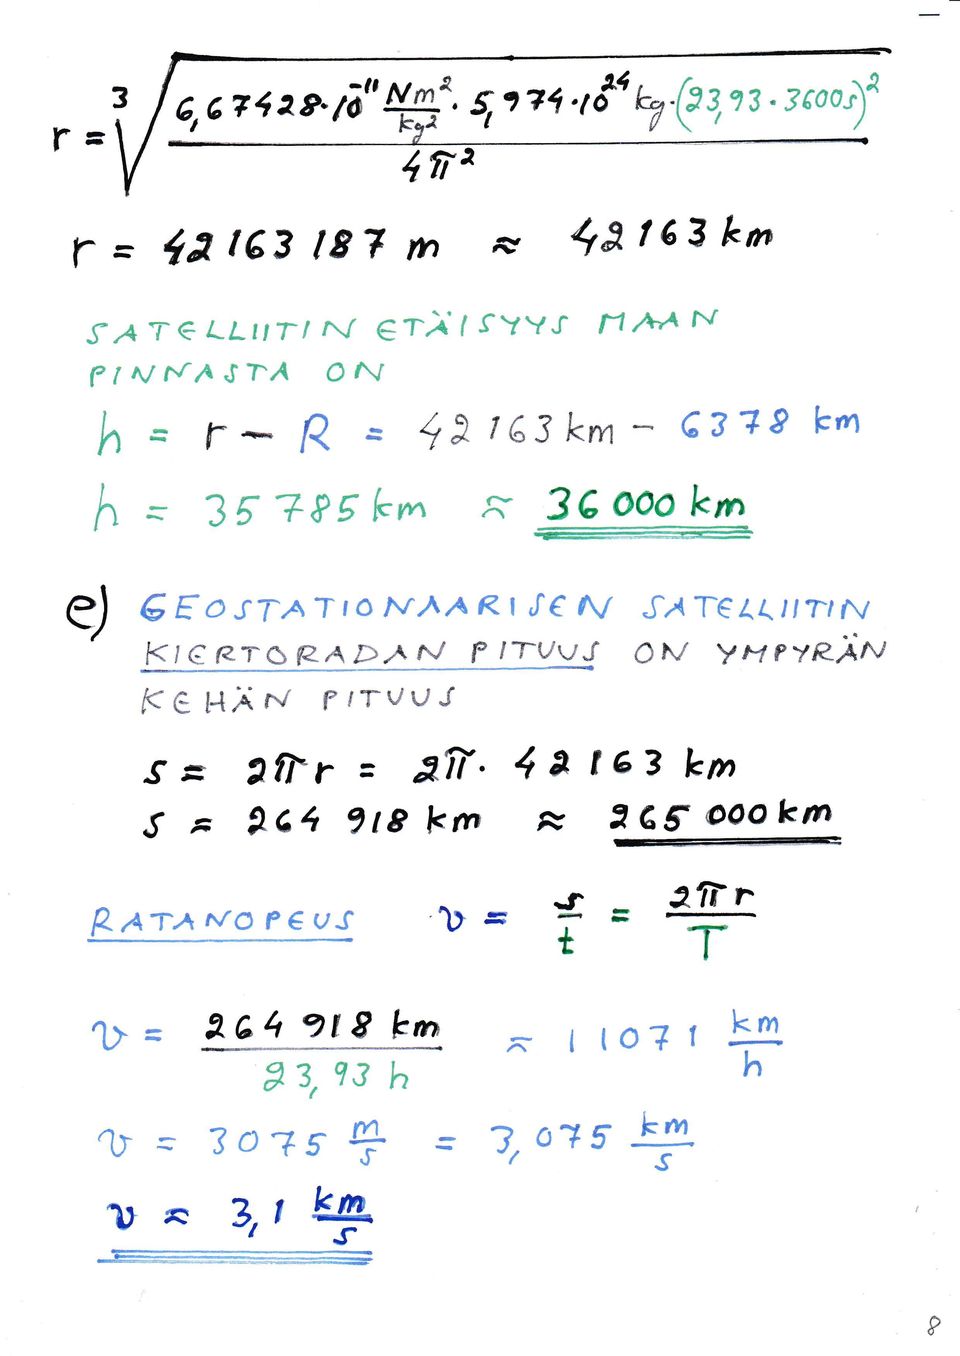 r = ∛(6,67428·10⁻¹¹ Nm²/kg² · 5,974·10²⁴ kg·(23,93·3600s)² / 4π²)
r = 42 163 187 m ≈ 42 163 km
SATELLIITIN ETÄISYYS MAAN
PINNASTA ON
h = r - R = 42 163 km - 6378 km
h = 35 785 km ≈ 36 000 km
e) GEOSTATIONAARISEN SATELLIITIN
KIERTORADAN PITUUS ON YMPYRÄN
KEHÄN PITUUS
s = 2πr = 2π· 42 163 km
s = 264 918 km ≈ 265 000 km
RATANOPEUS v = s/t = 2πr/T
v = 264 918 km / 23,93 h ≈ 11071 km/h
v = 3075 m/s = 3,075 km/s
v ≈ 3,1 km/s
8